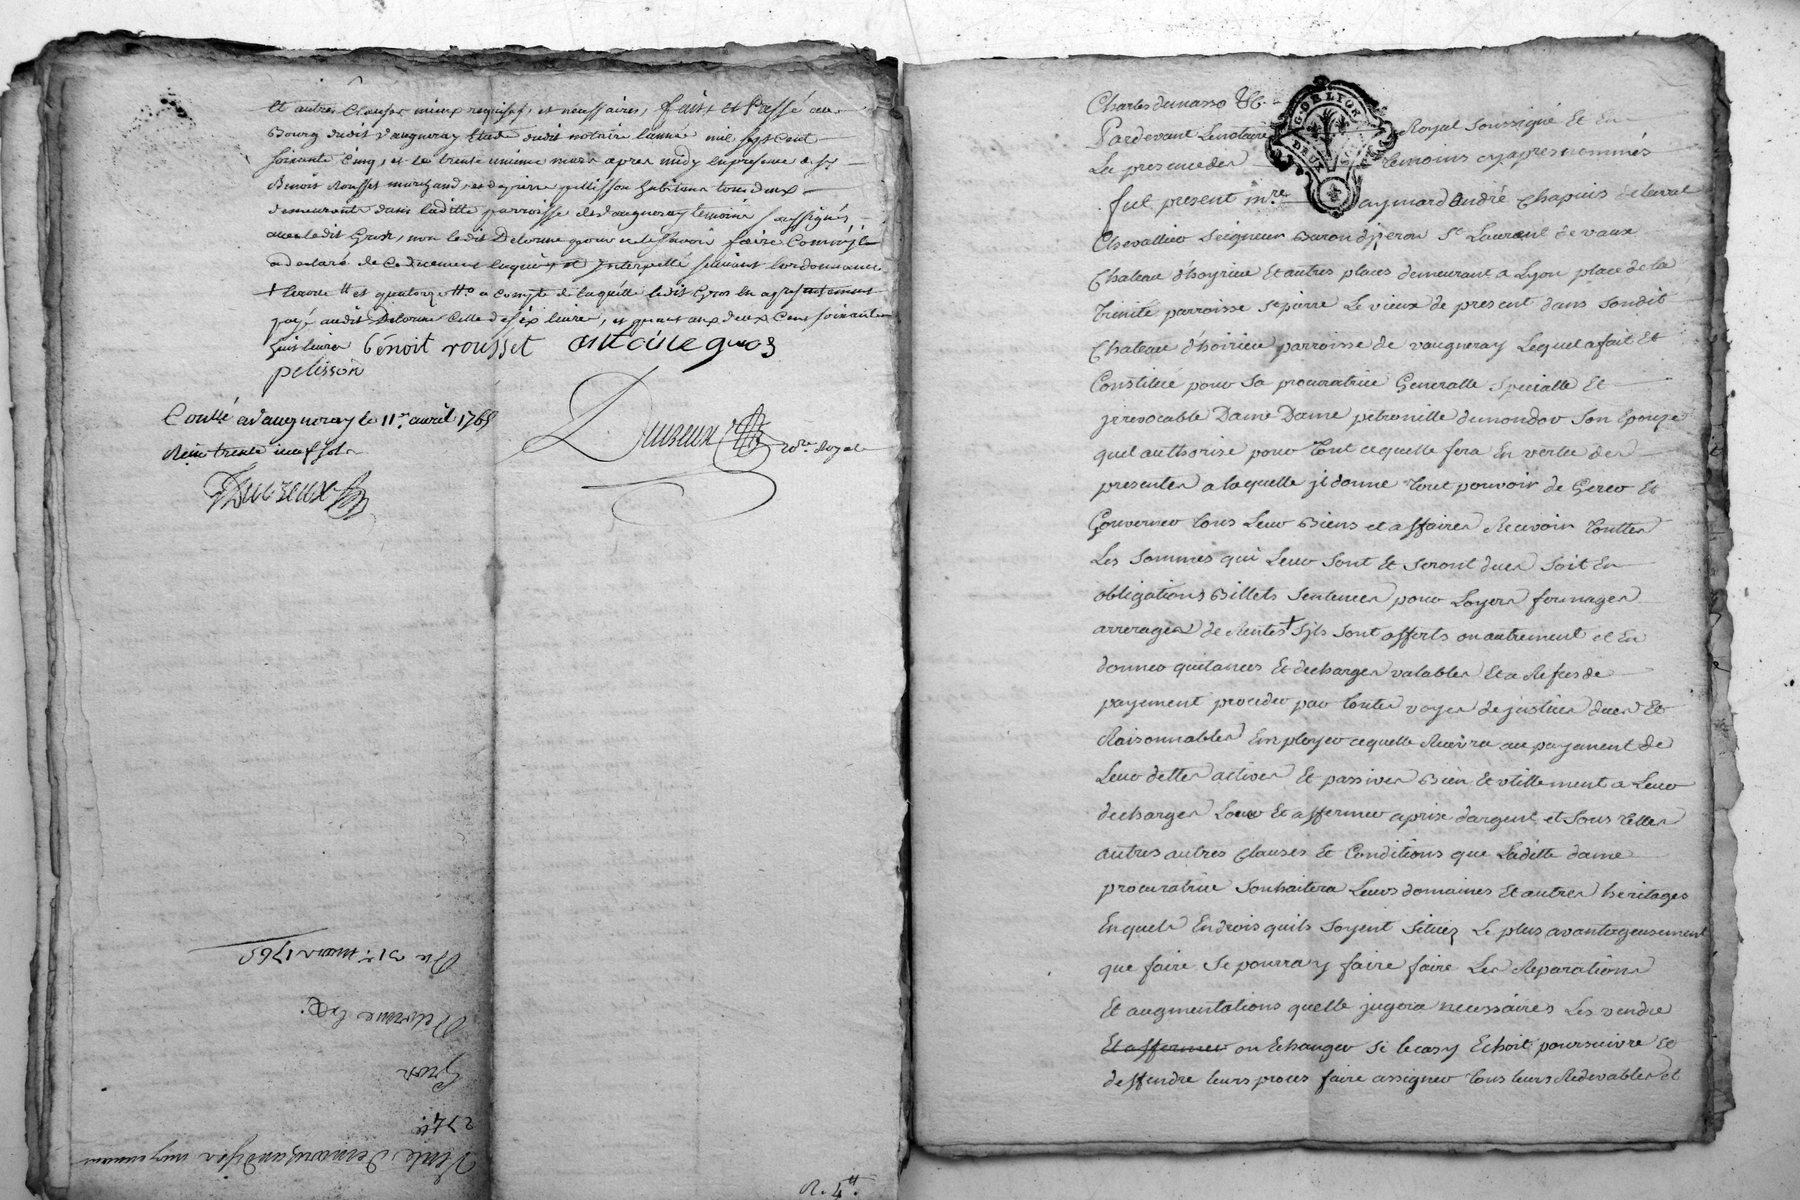 et autres clauses mieux requises, et necessaires, fait et Passé au
Bourg dudit Vaugneray Etude dudit notaire lannée mil sept cent
soixante cinq, et le trente unieme mars apres midy en presence de sr
Benoit Rousset marchand, et de pierre pellisson habitans tous deux
demeurants dans laditte parroisse de Vaugneray temoins soussignés
avec ledit Gros, non ledit Delorme pour ne le scavoir faire comme il
a declaré de ce duement enquis et Interpellé suivant lordonnance
et quatorze a compte de laquelle ledit Gros en a presentement
payé audit Delorme celle de six livres, et quant aux deux cent soixante
huit livres benoit rousset antoine gros
pelisson
Conllé a Vaugneray le 11e avril 1765
Reçu trente neuf sols
Duvzeux
Duvzeux Nore Royal
Du 31e mars 1765
Delorme
Gros
274tt
Vente de marchandises
Charles dumasso &c.
GDE LYON
DEUX
Pardevant Le notaire Royal Soussigné Et En
La presence des temoins cy apres nommés
fut present mre aymard andré Chapuis de laval
Chevallier Seigneur Baron djzeron St Laurent de vaux
Chateau d'hoyrieu Et autres places demeurant a Lyon place de la
Trinité parroisse St pierre Le vieux de present dans Sondit
Chateau d'hoirieu parroisse de vaugneray Lequel a fait Et
Constitué pour Sa procuratrice Generalle Specialle Et
jrrevocable Dame Dame petronille dumondor Son Epouze
quel authorise pour tout ce quelle fera En vertu des
presentes a laquelle jl donne tout pouvoir de Gerer Et
Gouverner tous Leur Biens et affaires Recevoir touttes
Les Sommes qui Leur Sont Et Seront dues Soit En
obligations Billets Sentences pour Loyers fermages
arrerages de Rentes + Sjls Sont offerts ou autrement et En
donner quitances Et decharges valables Et a Refus de
payement proceder par toutes voyes de justice dues Et
Raisonnables Employer ce quelle Recevra au payement de
Leur dettes actives Et passives Bien Et utillement a Leur
decharges Louer Et affermer a prix dargent et Sous telles
autres autres Clauses Et Conditions que Laditte dame
procuratrice Souhaitera Leurs domaines Et autres heritages
En quels Endrois quils Soyent Situez Le plus avantageusement
que faire Se pourray faire faire Les Reparations
Et augmentations quelle jugera necessaires Les vendre
Et affermer ou Echanger Si le cas y Echoit poursuivre Et
deffendre leurs proces faire assigner tous leurs Redevables et